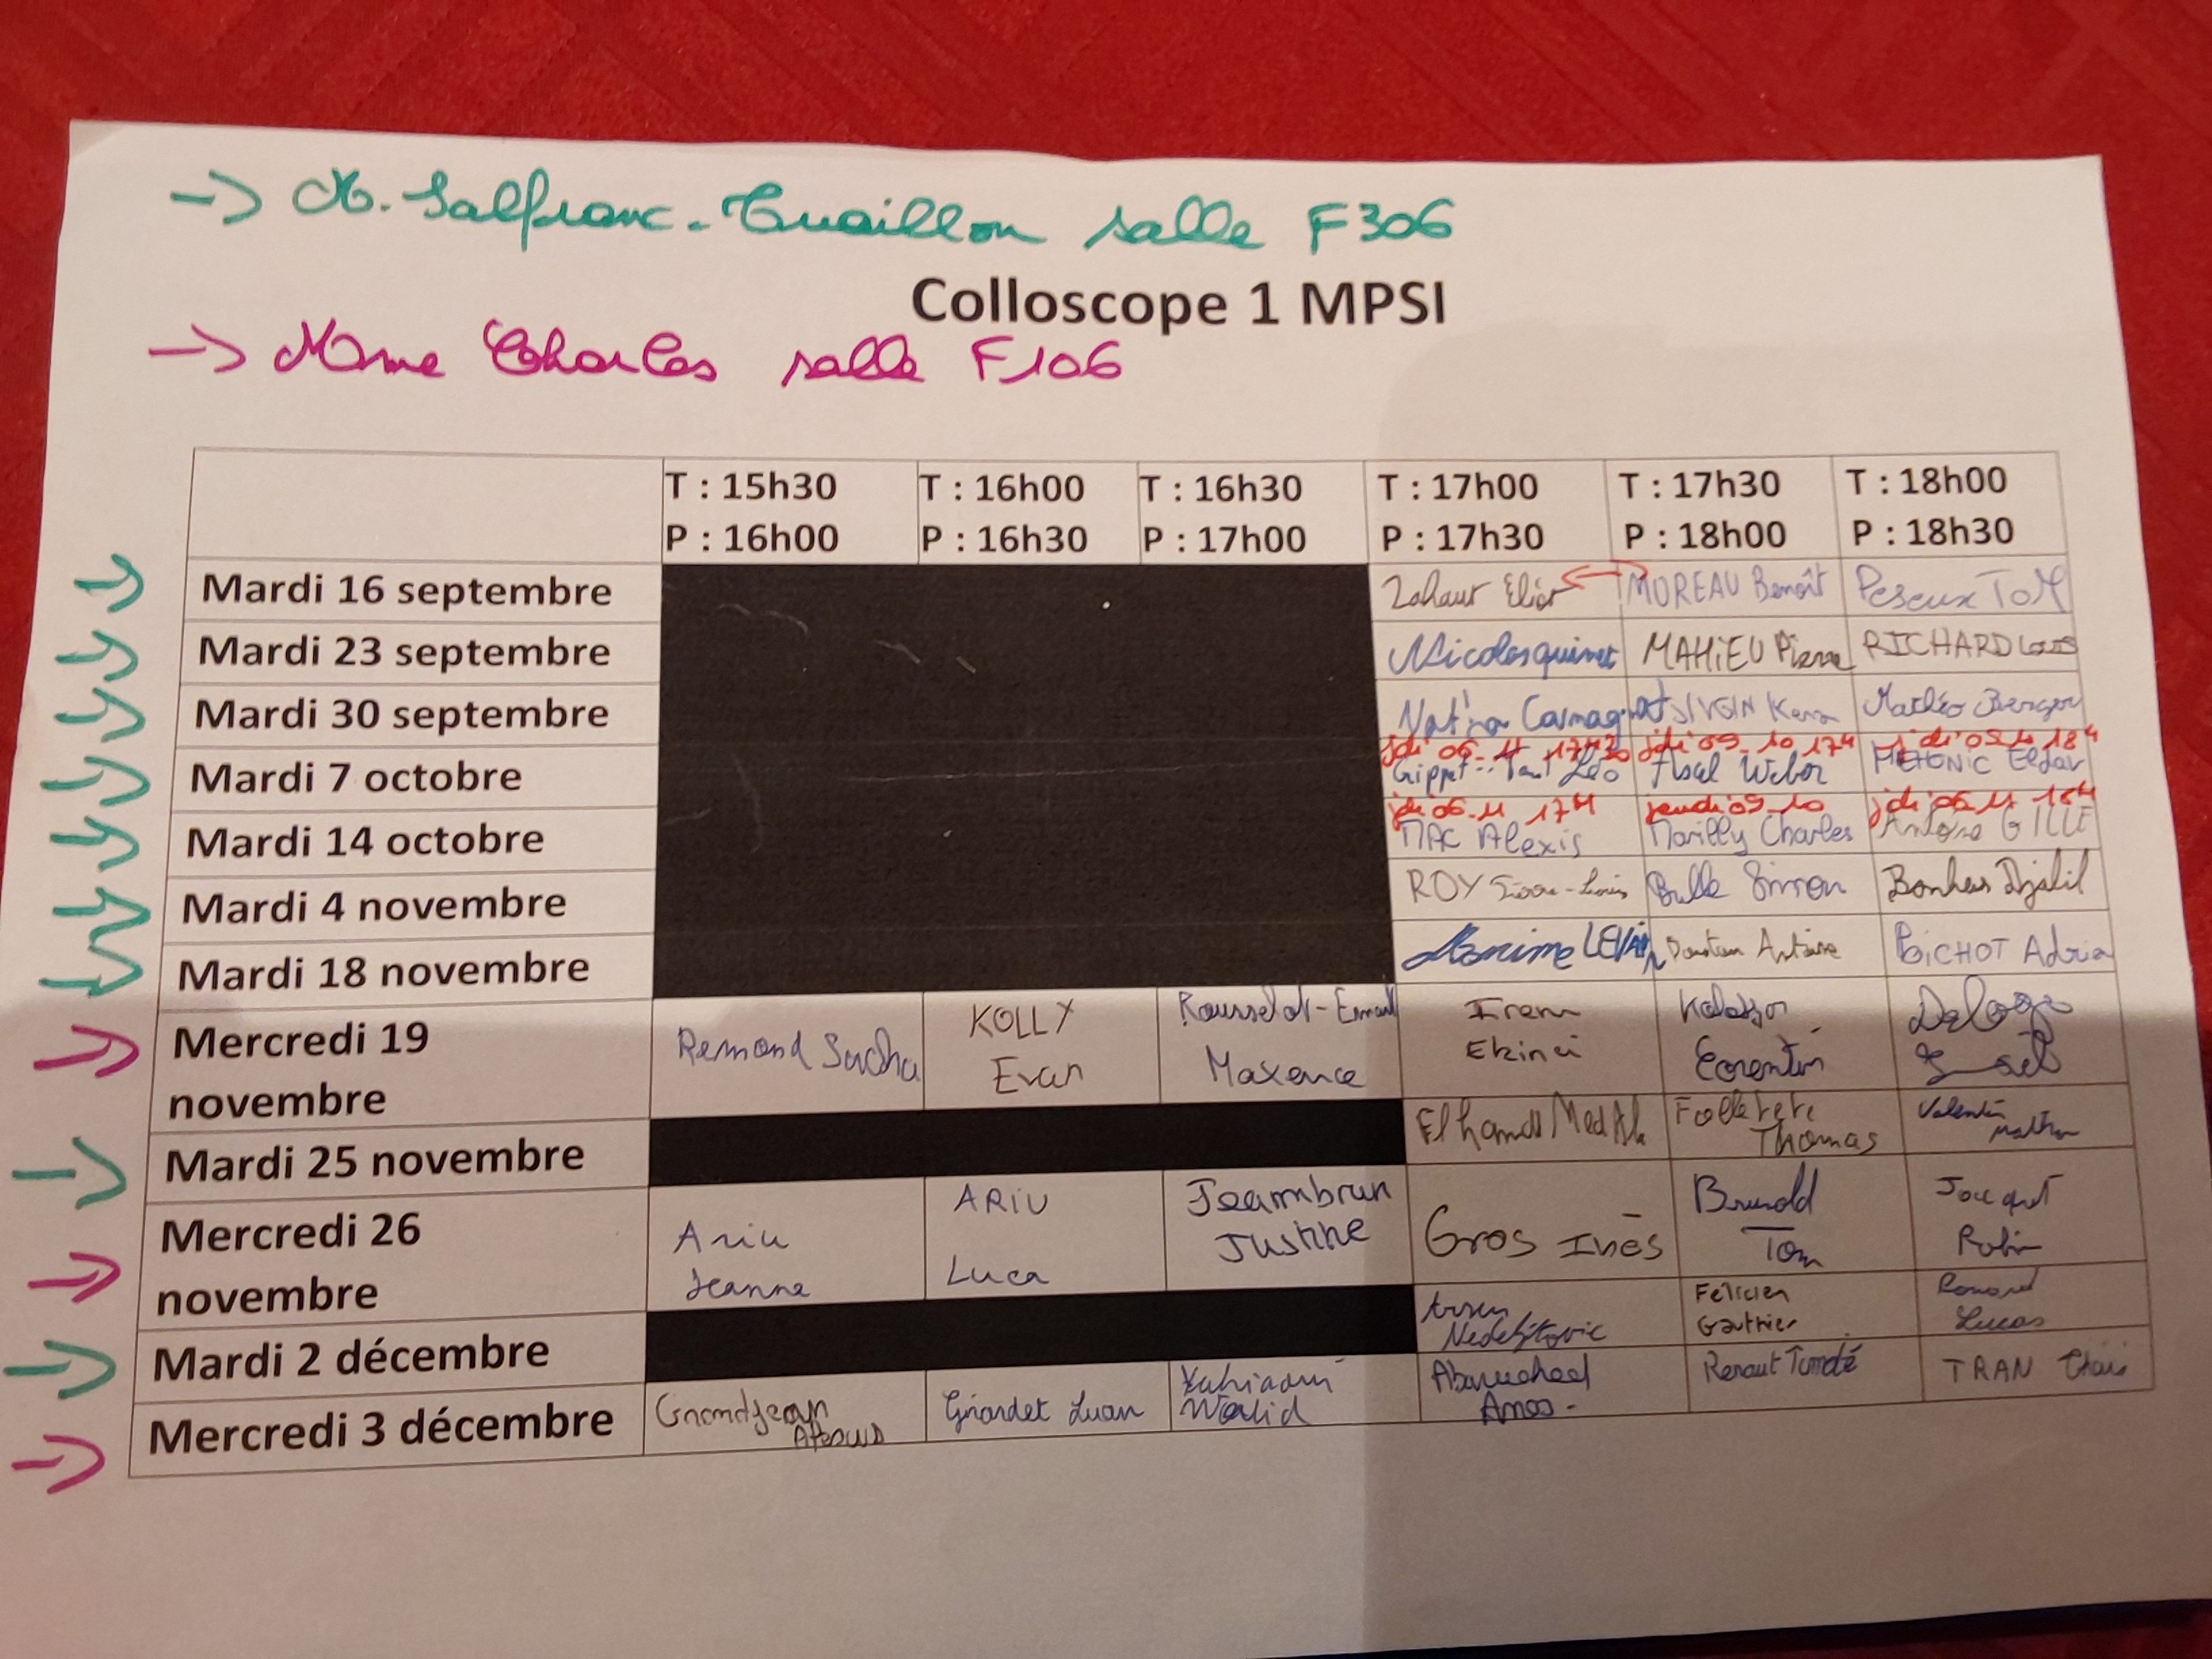 -> M. Salfranc-Tuaillon salle F306
Colloscope 1 MPSI
-> Mme Charles salle F106
T : 15h30 T : 16h00 T : 16h30 T : 17h00 T : 17h30 T : 18h00
P : 16h00 P : 16h30 P : 17h00 P : 17h30 P : 18h00 P : 18h30
Mardi 16 septembre Zahaur Elior MOREAU Benoît Peseux ToM
Mardi 23 septembre Nicolas quinet MAHiEU Pierre RICHARD Louis
Mardi 30 septembre Camagnat SIVGIN Mathéo Berger
jdi 06-11 17h30 jdi 09-10 17H jdi 18H
Mardi 7 octobre Léo Axel Weber MEHONIC Eldar
jdi 06-11 17H jeudi 09-10 jdi 06-11 18H
Mardi 14 octobre Alexis Marilly Charles Antoine GILLE
Mardi 4 novembre ROY Pierre-Louis Bulle Simon Bonhas Djalil
Mardi 18 novembre Maxime LEVAIN Antoine BiCHOT Adrian
Mercredi 19
novembre
Remond Sacha
KOLLY
Evan
Rousselot-
Maxence
Irem
Ekinci
Corentin
Deloge
Mardi 25 novembre Elhamdi Med Ali
Folletete
Thomas
Valentin
Mathon
Mercredi 26
novembre
Ariu
Jeanne
ARIU
Luca
Jeambrun
Justine
Gros Inès
Brunold
Tom
Jacquot
Robin
Mardi 2 décembre
Arsen
Nedeljkovic
Félicien
Gauthier
Lucas
Mercredi 3 décembre
Grandjean
Girardet Luan
Yahiaoui
Walid
Abouchaed
Amos -
Renaut Timoté
TRAN Thaïs